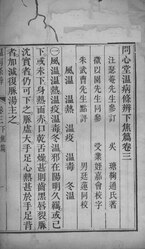 問心堂溫病條辨下焦篇卷三
汪瑟菴先生叅訂　吳　瑭鞠通氏著
徵以園先生同叅　受業姪嘉會校字
朱武曹先生點評　男廷蓮同校
風溫　溫熱　溫疫　溫毒　冬溫
㊀風溫溫熱溫疫溫毒冬溫邪在陽明久羈或已
下或未下身熱面赤口乾舌燥甚則齒黑唇裂脈
沈實者仍可下之脈虛大手足心熱甚於手足背
者加減復脈湯主之